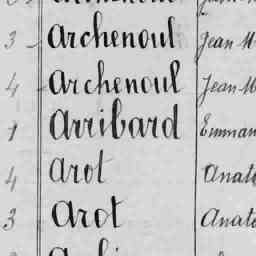 3 Archenoul Jean M
4 Archenoul Jean M
1 Arribard Emman
4 Arot Anato
3 Arot Anato